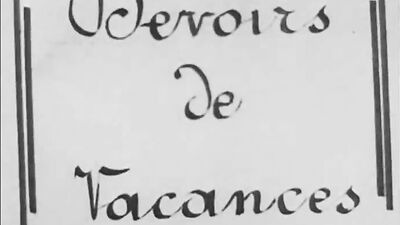 Devoirs
de
Vacances